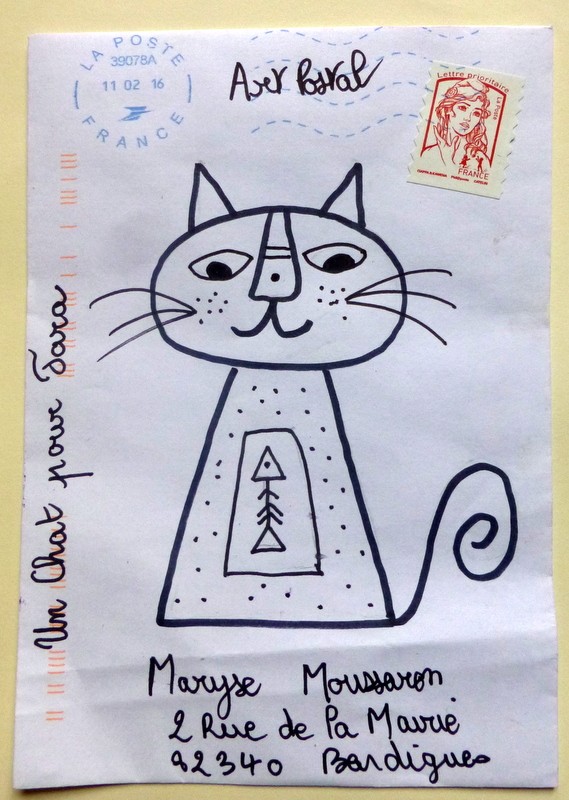 LA POSTE
39078A
11 02 16
FRANCE
Art Postal
Lettre prioritaire
LA POSTE
FRANCE
Un Chat pour Sara
Maryse Moussaron
2 Rue de la Mairie
82340 Bardigues